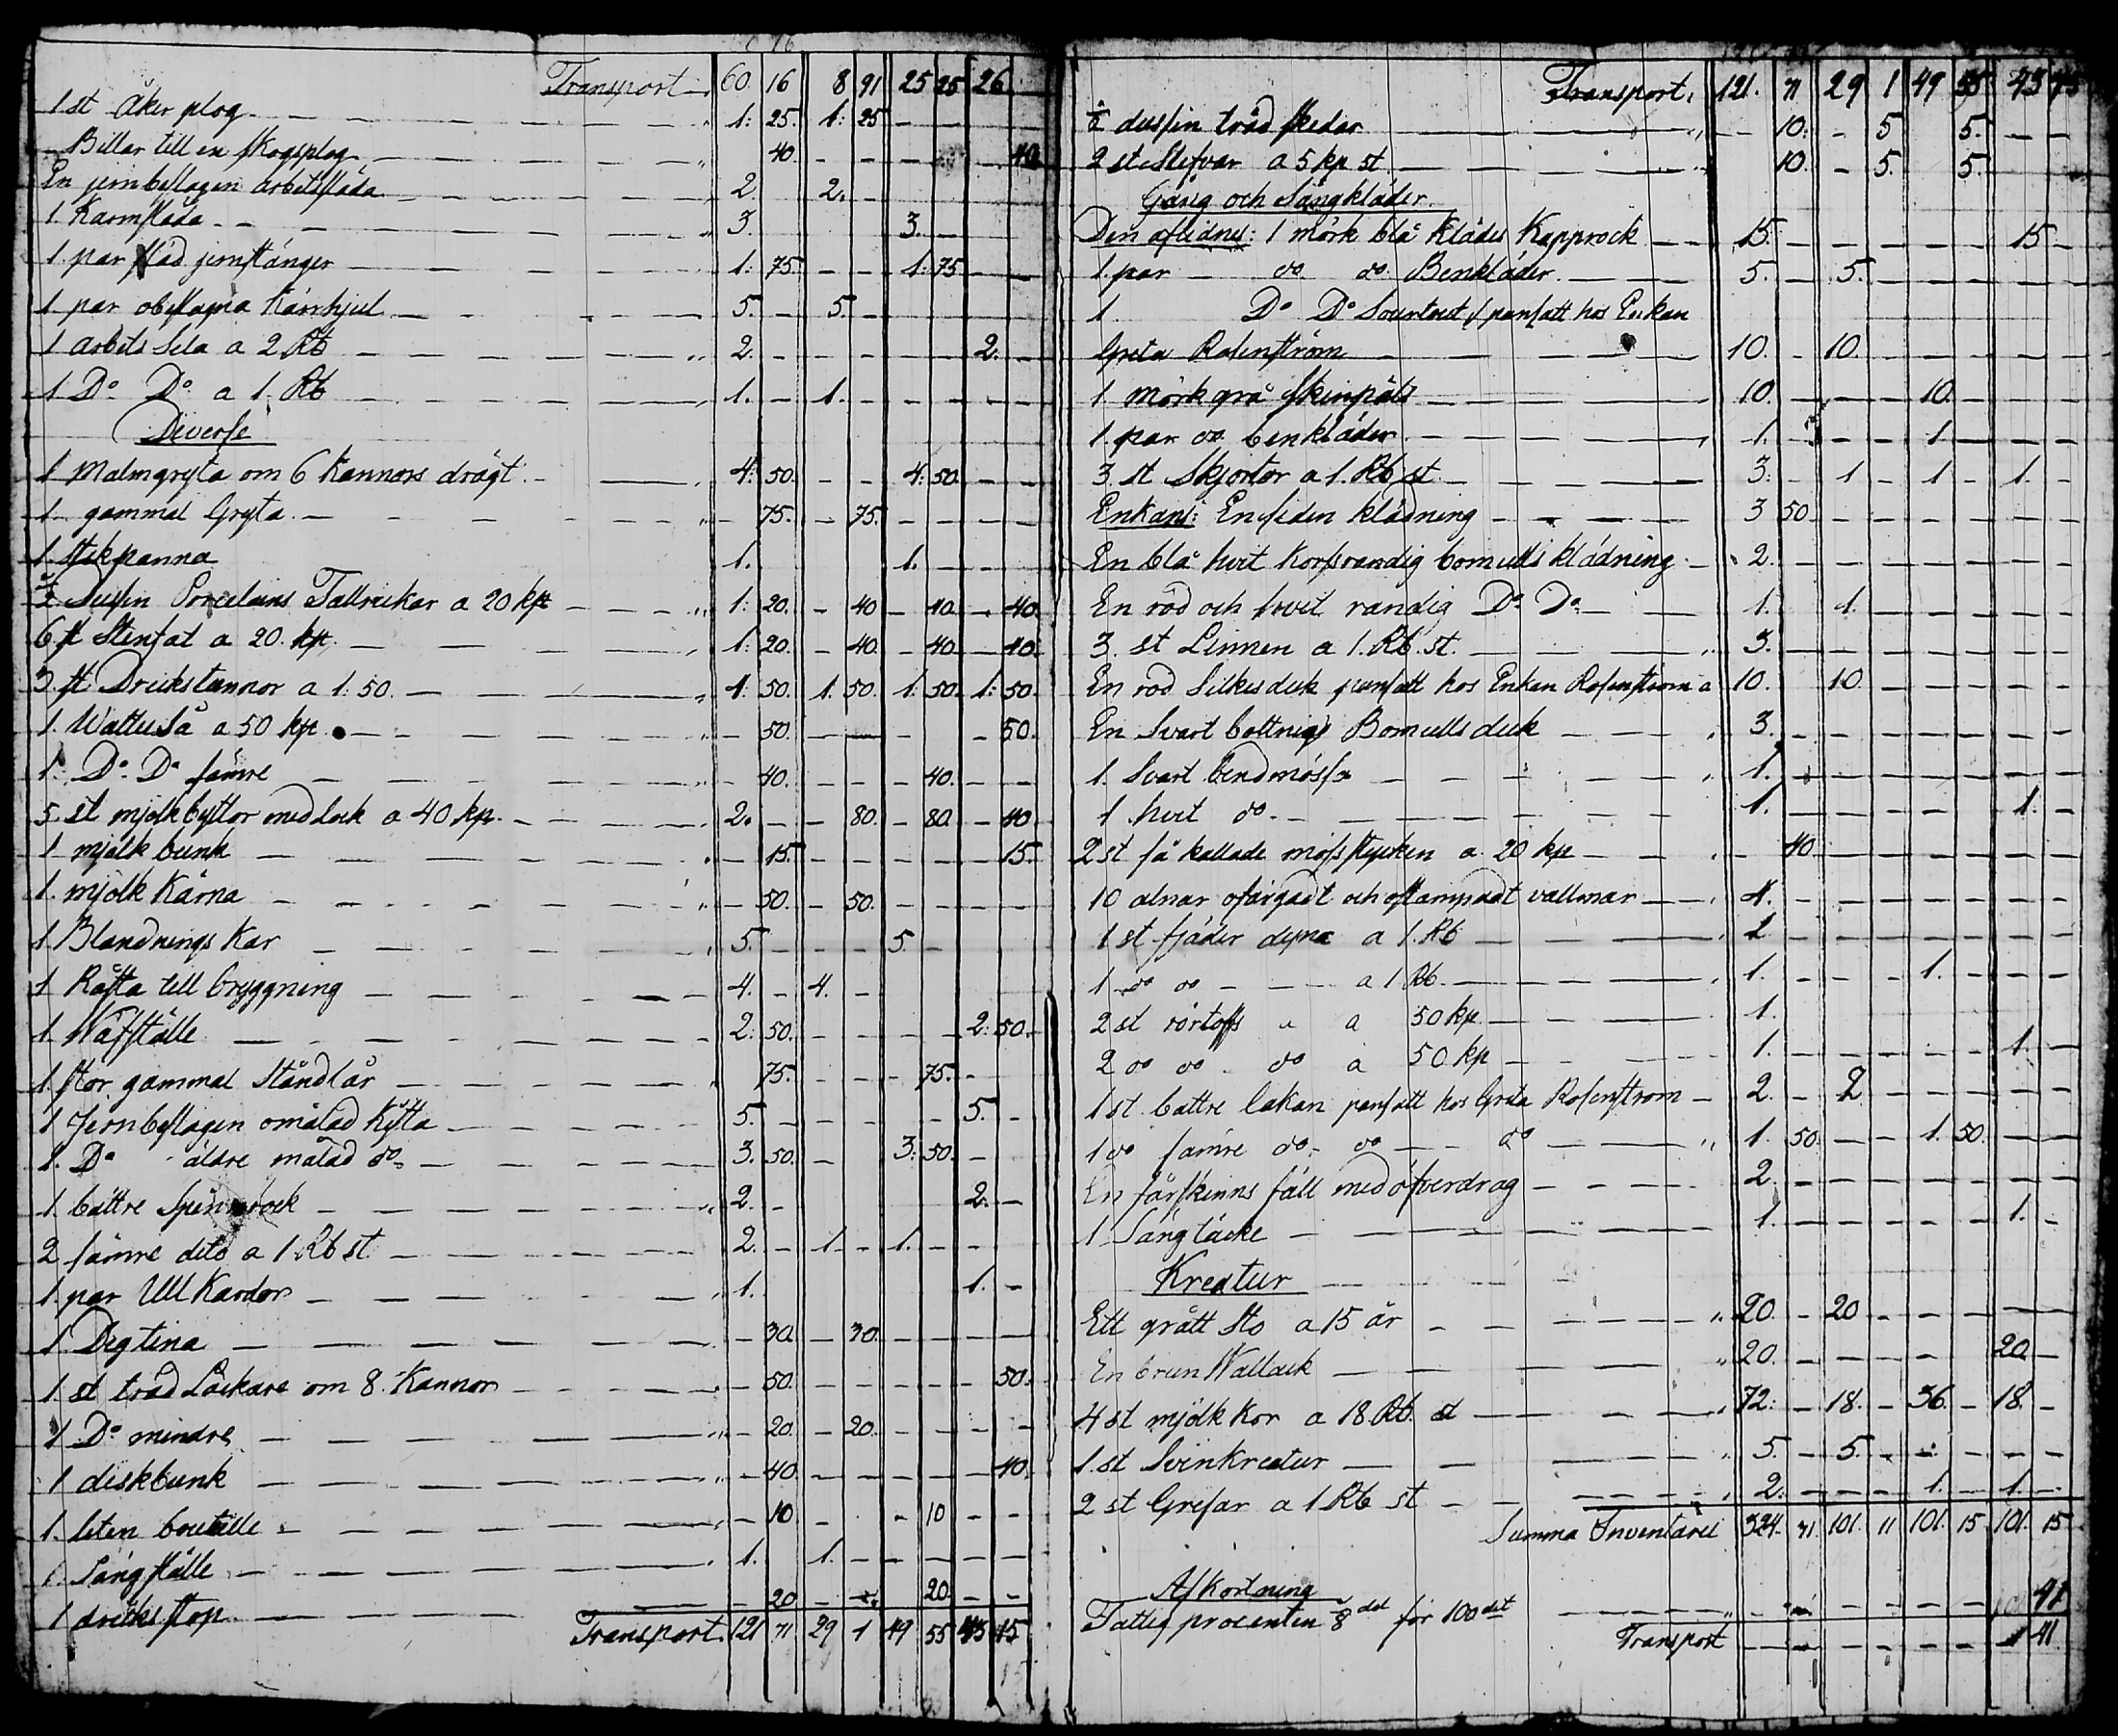 Transport 60. 16 8 91 25 25 26
1 st Åker plog 1: 25. 1: 25
Billar till en skogsplog 40 40
En jernbeslagen arbetssläda 2. 2.
1. Karmsläda 3. 3.
1 par släd jernstänger 1: 75. 1: 75
1 par obeslagna Kärrhjul 5. 5.
1 arbets Sela a 2 Rb 2. 2.
1 Do Do a 1. Rb 1. 1.
Diverse
1 Malmgryta om 6 Kannors drägt 4: 50. 4: 50.
1 gammal Gryta 75. 75.
1. Stekpanna 1. 1.
½ Dussin Porcelains Tallrickar a 20 kp 1: 20. 40 40. 40.
6 st Stenfat a 20. kp. 1: 20. 40. 40. 40.
3. st Drickstunnor a 1: 50. 4: 50. 1. 50. 1: 50. 1: 50.
1. Wattu Så a 50 kp. 50. 50.
1. Do Do sämre 40. 40.
5. st mjölkbyttor med lock a 40 kp. 2. 80. 80. 40
1 mjölk bunk 15. 15.
1. mjölk Kärna 50. 50.
1 Blandnings Kar 5. 5.
1 Råsta till bryggning 4. 4.
1. Wäfställe 2: 50. 2: 50.
1. stor gammal Ståndlår 75. 75.
1 Jernbeslagen omålad Kista 5. 5.
1. Do äldre målad do 3. 50. 3: 50.
1. bättre Spinnrock 2. 2.
2 sämre dito a 1 Rb st 2. 1. 1.
1. par Ull Kardor 1. 1.
1 Degtina 30. 30.
1 st träd Läckare om 8. Kannor 50. 50.
1 Do mindre 20. 20.
1 diskbunk 40. 40.
1. liten boutelle 10 10
1 Sängställe 1. 1.
1 dricksstop 20 20.
Transport. 121 71 29 1 49 55 45 15
Transport. 121. 71 29 1 49 55 43 75
½ dussin träd skedar 10. 5 5.
2 st Slefvar a 5 kp st 10. 5. 5.
Gång och Sängkläder.
Den aflidnes: 1 mörk blå Klädes Kapprock 15. 15
1. par do do Benkläder 5. 5.
1. Do Do Sourtout pansatt hos Enkan
Greta Rosenström 10. 10.
1. mörk grå Skinpäls 10. 10.
1. par do benkläder 1. 1.
3. st Skjortor a 1. Rb st. 3. 1 1 1.
Enkans: En siden klädning 3 50
En blå hvit Korsrandig bomulls klädning 2.
En röd och hvit randig Do Do 1. 1.
3. st Linnen a 1. Rb. st. 3.
En röd Silkesduk pansatt hos Enkan Rosenström a 10. 10.
En Svart bottnig Bomulls duk 3.
1. Svart bindmössa 1.
1 hvit do 1. 1.
2 st så kallade mössstycken a 20 kp 40
10 alnar ofärgadt och ostampadt vallmar 4.
1 st fjäder dyna a 1. Rb 1
1 do do a 1 Rb. 1. 1.
2 st a 50 kp 1.
2 do do do a 50 kp 1. 1.
1 st. bättre lakan pansatt hos Greta Rosenström 2. 2
1 do sämre do do do 1. 50. 1. 50.
En fårskinns fäll med öfverdrag 2.
1 Sängtäcke 1. 1.
Kreatur
Ett grått Sto a 15 år 20. 20
En brun Wallack 20. 20.
4 st mjölk Kor a 18 Rb. st 72. 18. 36. 18.
1. st Svinkreatur 5. 5.
2 st Grisar a 1 Rb st 2. 1. 1.
Summa Inventarii 324. 71. 101. 11 101. 15. 101. 15
Afkortning
Fattig procenten ⅛ det för 100 det 41
Transport 41